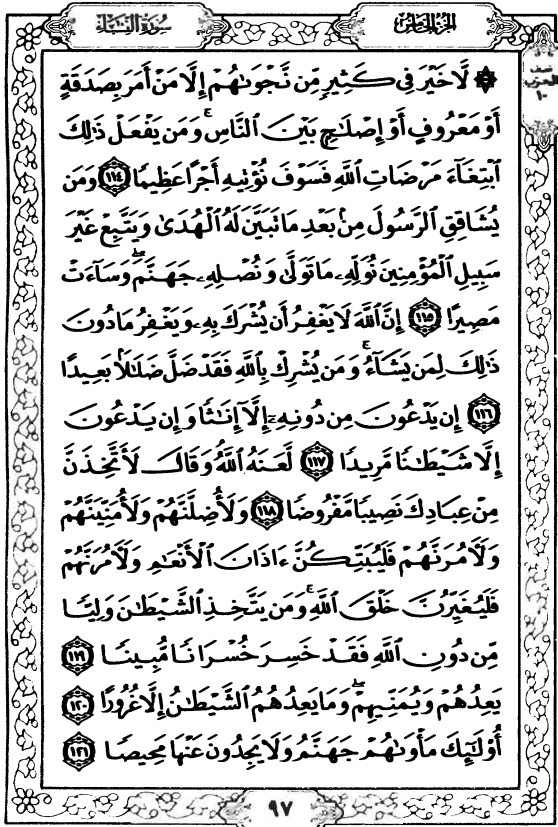 سُورَةُ النِّسَاءِ
الجُزْءُ الخَامِسُ
نصف
الحزب
١٠
لَّا خَيْرَ فِي كَثِيرٍ مِّن نَّجْوَىٰهُمْ إِلَّا مَنْ أَمَرَ بِصَدَقَةٍ
أَوْ مَعْرُوفٍ أَوْ إِصْلَٰحٍۭ بَيْنَ النَّاسِ ۚ وَمَن يَفْعَلْ ذَٰلِكَ
ابْتِغَآءَ مَرْضَاتِ اللَّهِ فَسَوْفَ نُؤْتِيهِ أَجْرًا عَظِيمًا ١١٤ وَمَن
يُشَاقِقِ الرَّسُولَ مِنۢ بَعْدِ مَا تَبَيَّنَ لَهُ الْهُدَىٰ وَيَتَّبِعْ غَيْرَ
سَبِيلِ الْمُؤْمِنِينَ نُوَلِّهِۦ مَا تَوَلَّىٰ وَنُصْلِهِۦ جَهَنَّمَ ۖ وَسَآءَتْ
مَصِيرًا ١١٥ إِنَّ اللَّهَ لَا يَغْفِرُ أَن يُشْرَكَ بِهِۦ وَيَغْفِرُ مَا دُونَ
ذَٰلِكَ لِمَن يَشَآءُ ۚ وَمَن يُشْرِكْ بِاللَّهِ فَقَدْ ضَلَّ ضَلَٰلًۢا بَعِيدًا
١١٦ إِن يَدْعُونَ مِن دُونِهِۦٓ إِلَّآ إِنَٰثًا وَإِن يَدْعُونَ
إِلَّا شَيْطَٰنًا مَّرِيدًا ١١٧ لَّعَنَهُ اللَّهُ وَقَالَ لَأَتَّخِذَنَّ
مِنْ عِبَادِكَ نَصِيبًا مَّفْرُوضًا ١١٨ وَلَأُضِلَّنَّهُمْ وَلَأُمَنِّيَنَّهُمْ
وَلَءَامُرَنَّهُمْ فَلَيُبَتِّكُنَّ ءَاذَانَ الْأَنْعَٰمِ وَلَءَامُرَنَّهُمْ
فَلَيُغَيِّرُنَّ خَلْقَ اللَّهِ ۚ وَمَن يَتَّخِذِ الشَّيْطَٰنَ وَلِيًّا
مِّن دُونِ اللَّهِ فَقَدْ خَسِرَ خُسْرَانًا مُّبِينًا ١١٩
يَعِدُهُمْ وَيُمَنِّيهِمْ ۖ وَمَا يَعِدُهُمُ الشَّيْطَٰنُ إِلَّا غُرُورًا ١٢٠
أُو۟لَٰٓئِكَ مَأْوَىٰهُمْ جَهَنَّمُ وَلَا يَجِدُونَ عَنْهَا مَحِيصًا ١٢١
٩٧